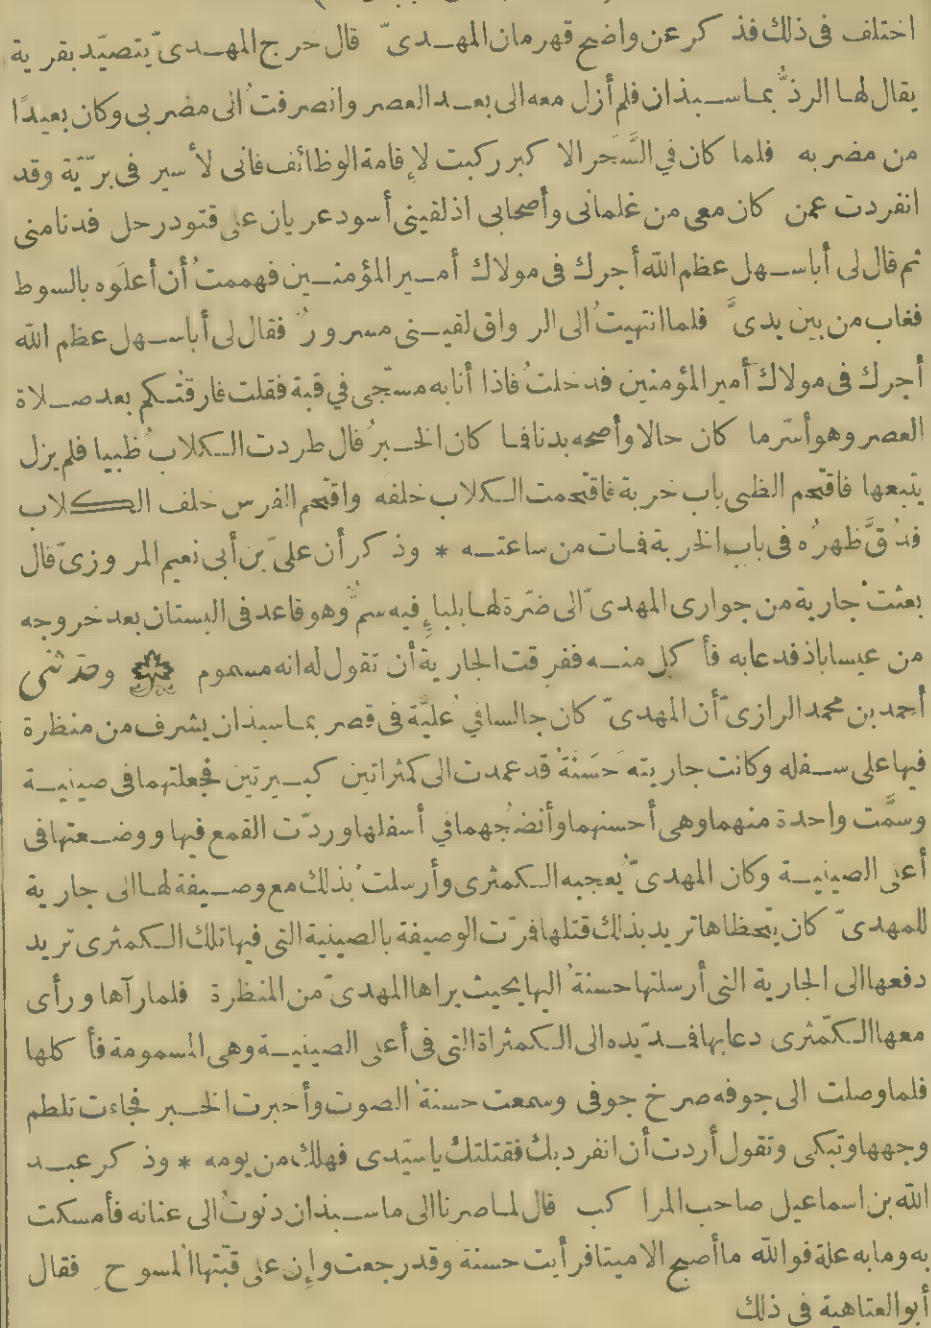 اختلف في ذلك فذكر عن واضح قهرمان المهدىّ قال خرج المهدىّ يتصيّد بقرية
يقال لها الرذُّ بماسبذان فلم أزل معه الى بعد العصر وانصرفتُ الى مضربى وكان بعيدًا
من مضربه فلما كان في السَّحَر الاكبر ركبت لإقامة الوظائف فانى لأسير فى برّيّة وقد
انفردت عمن كان معى من غلمانى وأصحابى اذ لقينى أسود عريان على قتود رحل فدنا منى
ثم قال لى أبا سهل عظم الله أجرك فى مولاك أمير المؤمنين فهممتُ أن أعلوه بالسوط
فغاب من بين يدىَّ فلما انتهيتُ الى الرواق لقينى مسرورٌ فقال لى أبا سهل عظم الله
أجرك فى مولاك أمير المؤمنين فدخلتُ فاذا أنا به مسجّى في قبة فقلت فارقتُكم بعد صلاة
العصر وهو أسرّ ما كان حالا وأصحه بدنا فما كان الخبرُ قال طردت الكلابُ ظبيا فلم يزل
يتبعها فاقتحم الظبى باب خربة فاقتحمت الكلاب خلفه واقتحم الفرس خلف الكلاب
فدُقَّ ظهرُه فى باب الخربة فمات من ساعته * وذكر أن علىّ بن أبى نعيم المروزىّ قال
بعثتْ جارية من جوارى المهدىّ الى ضَرّة لها بلباءٍ فيه سمٌّ وهو قاعد فى البستان بعد خروجه
من عيساباذ فدعا به فأكل منه ففرقت الجارية أن تقول له انه مسموم وحدّثنى
أحمد بن محمد الرازىّ أن المهدىّ كان جالسا في عُليَّة فى قصر بماسبذان يشرف من منظرة
فيها على سفله وكانت جاريته حَسَنةُ قد عمدت الى كمثراتين كبيرتين فجعلتهما فى صينية
وسمَّت واحدة منهما وهى أحسنهما وأنضجهما في أسفلها وردّت القمع فيها ووضعتها فى
أعلى الصينية وكان المهدىّ يُعجبه الكمثرى وأرسلتْ بذلك مع وصيفة لها الى جارية
للمهدىّ كان يتحظاها تريد بذلك قتلها فمرّت الوصيفة بالصينية التى فيها تلك الكمثرى تريد
دفعها الى الجارية التى أرسلتها حسنةُ اليها بحيث يراها المهدىّ من المنظرة فلما رآها ورأى
معها الكمّثرى دعا بها فمدّ يده الى الكمثراة التى فى أعلى الصينية وهى المسمومة فأكلها
فلما وصلت الى جوفه صرخ جوفى وسمعت حسنةُ الصوت وأخبرت الخبر فجاءت تلطم
وجهها وتبكى وتقول أردت أن انفرد بك فقتلتك يا سيّدى فهلك من يومه * وذكر عبد
الله بن اسماعيل صاحب المراكب قال لما صرنا الى ماسبذان دنوتُ الى عنانه فأمسكت
به وما به علة فوالله ما أصبح الا ميتا فرأيت حسنة وقد رجعت وإن على قبّتها المسوحِ فقال
أبو العتاهية في ذلك